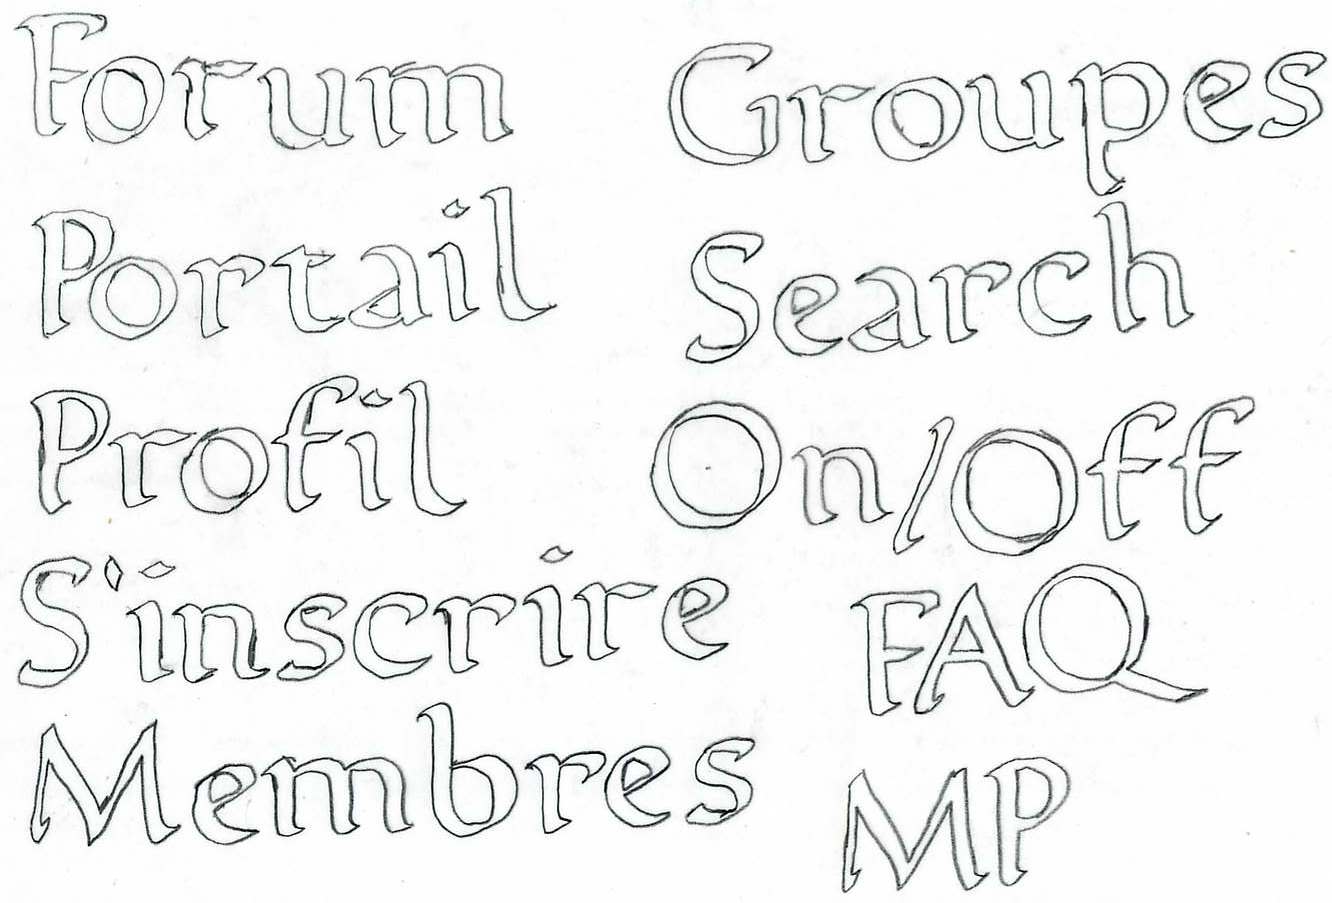 Forum
Portail
Profil
S'inscrire
Membres
Groupes
Search
On/Off
FAQ
MP